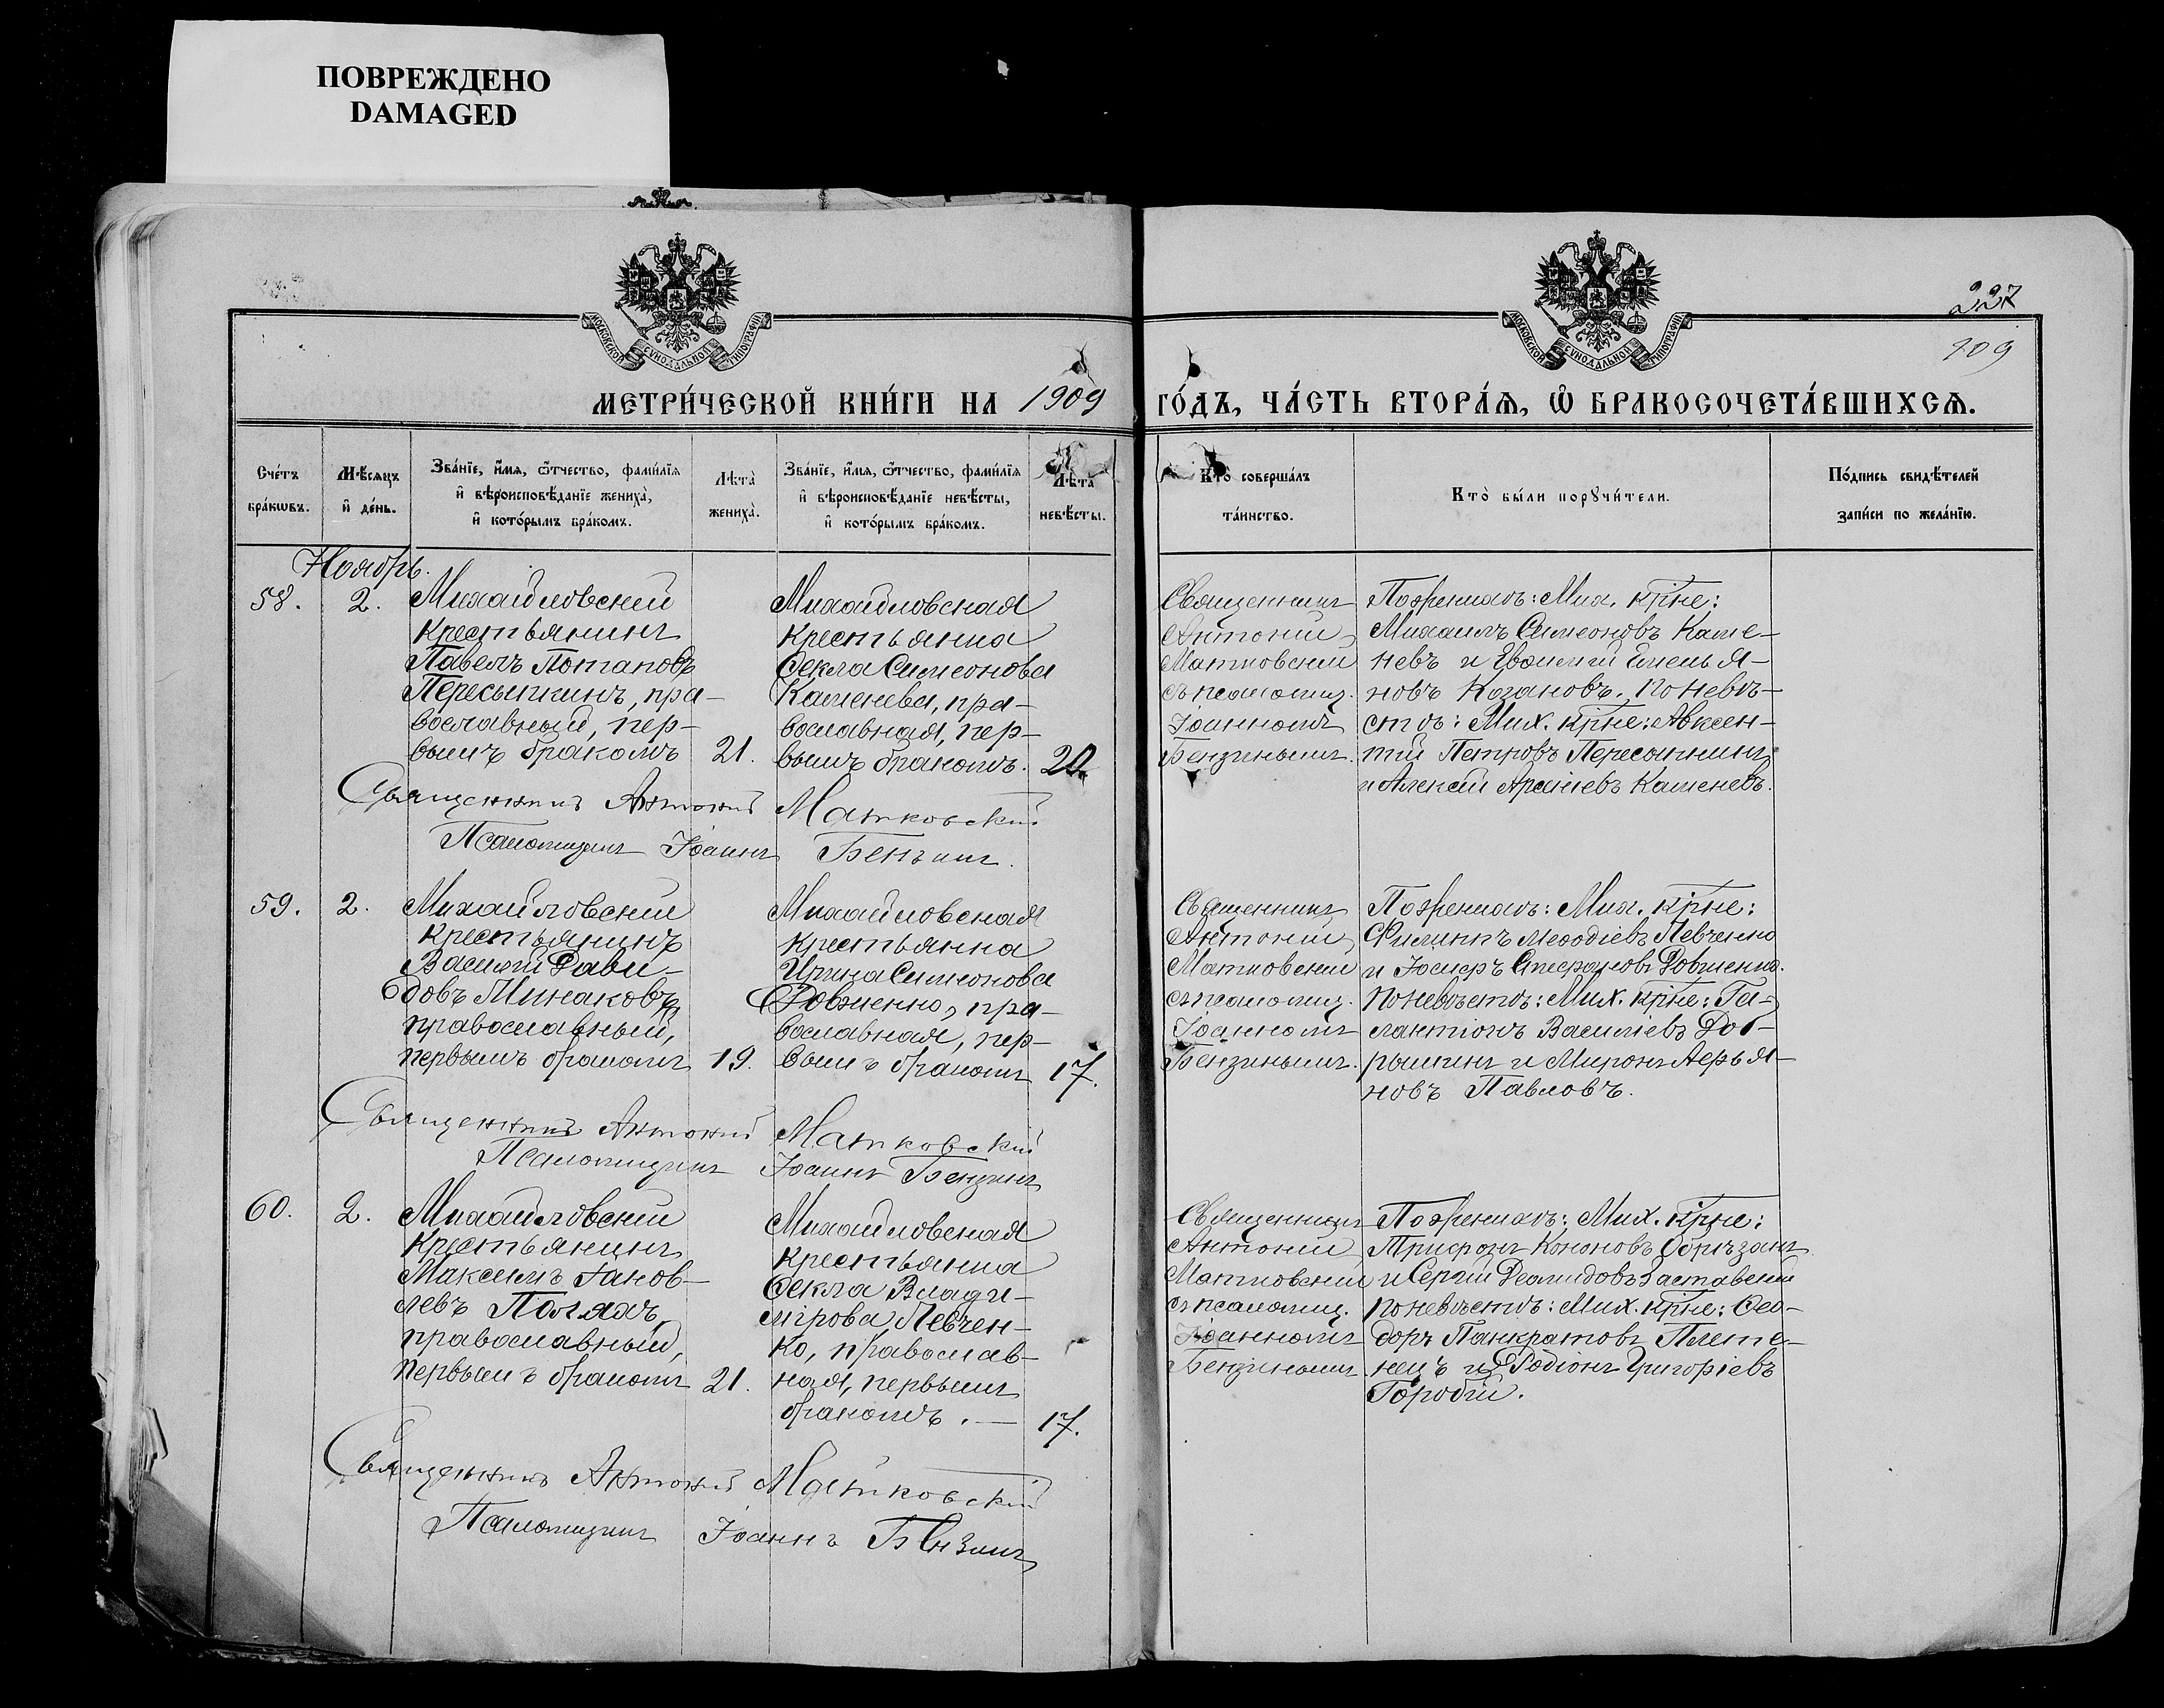 ПОВРЕЖДЕНО
DAMAGED
МОСКОВСКОЙ СѴНОДАЛЬНОЙ ТИПОГРАФІИ
МОСКОВСКОЙ СѴНОДАЛЬНОЙ ТИПОГРАФІИ
227
109
МЕТРИ́ЧЕСКОЙ КНИ́ГИ НА 1909
ГО́ДЪ, ЧА́СТЬ ВТОРА́Ѧ, Ѡ҆ БРАКОСОЧЕТА́ВШИХСѦ.
Сче́тъ
бра́кѡвъ.
Мѣ́сѧцъ
и҆ де́нь.
Зва́нїе, и҆́мѧ, ѻ҆́тчество, фами́лїѧ
и҆ вѣроисповѣ́данїе жениха̀,
и҆ кото́рымъ бра́комъ.
Лѣта̀
жениха̀.
Зва́нїе, и҆́мѧ, ѻ҆́тчество, фами́лїѧ
и҆ вѣроисповѣ́данїе невѣ́сты,
и҆ кото́рымъ бра́комъ.
Лѣта̀
невѣ́сты.
Кто̀ соверша́лъ
та́инство.
Кто̀ бы́ли порꙋчи́тели.
По́дпись свидѣ́телей
за́писи по жела́нїю.
Ноябрь.
58.
2.
Михайловский
крестьянинъ
Павелъ Потаповъ
Пересыпкинъ, пра-
вославный, пер-
вымъ бракомъ
21.
Михайловская
крестьянка
Ѳекла Симеонова
Каменева, пра-
вославная, пер-
вымъ бракомъ.
20.
Священникъ
Антоній
Матковский
съ псаломщ.
Іоанномъ
Бензинымъ.
По женихѣ: Мих. кр҃не:
Михаилъ Симеоновъ Каме-
невъ и Евѳимій Емелья-
новъ Козановъ. По невѣ-
стѣ: Мих. кр҃не: Авксен-
тій Петровъ Пересыпкинъ
и Алексѣй Арсеніевъ Каменевъ.
Священникъ Антоній Матковскій
Псаломщикъ Іоаннъ Бензинъ.
59.
2.
Михайловский
крестьянинъ
Василій Дави-
довъ Минаковъ,
православный,
первымъ бракомъ
19.
Михайловская
крестьянка
Ирина Симеонова
Довженко, пра-
вославная, пер-
вымъ бракомъ
17.
Священникъ
Антоній
Матковский
съ псаломщ.
Іоанномъ
Бензинымъ.
По женихѣ: Мих. кр҃не:
Филиппъ Меѳодіевъ Левченко
и Іосифъ Стефановъ Довженко.
По невѣстѣ: Мих. кр҃не: Га-
лактіонъ Василіевъ Доб-
рышинъ и Миронъ Аверья-
новъ Павловъ.
Священникъ Антоній Матковскій
Псаломщикъ Іоаннъ Бензинъ
60.
2.
Михайловский
крестьянинъ
Максимъ Іаков-
левъ Полякъ,
православный,
первымъ бракомъ
21.
Михайловская
крестьянка
Ѳекла Влади-
мірова Левчен-
ко, православ-
ная, первымъ
бракомъ. —
17.
Священникъ
Антоній
Матковский
съ псаломщ.
Іоанномъ
Бензинымъ.
По женихѣ: Мих. кр҃не:
Трифонъ Кононовъ Обрѣзанъ
и Сергій Демидовъ Заставский
По невѣстѣ: Мих. кр҃не: Ѳео-
доръ Панкратовъ Плете-
нецъ и Родіонъ Григоріевъ
Горобій.
Священникъ Антоній Матковскій
Псаломщикъ Іоаннъ Бензинъ